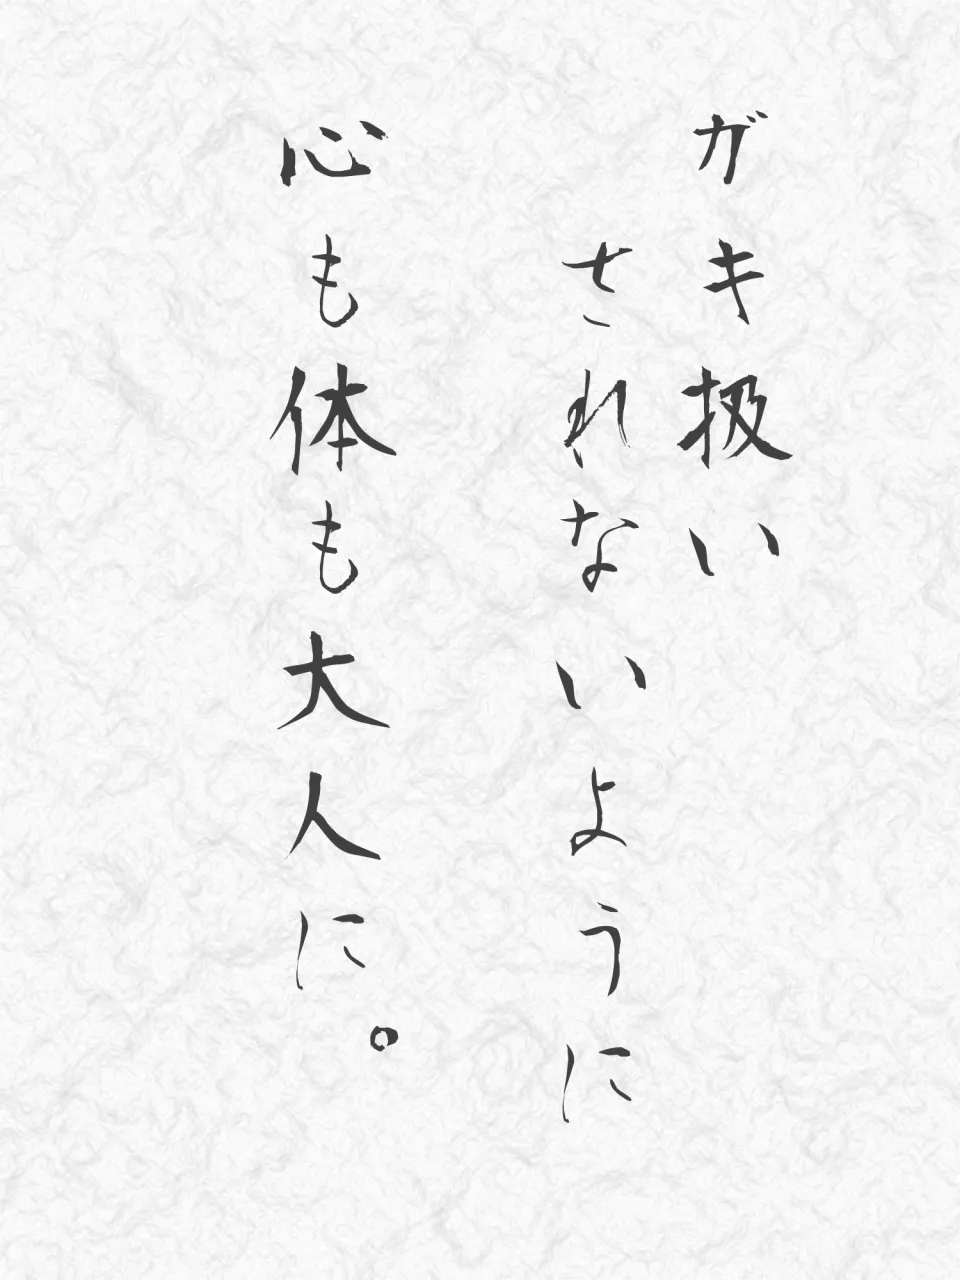 ガキ扱い
されないように
心も体も大人に。